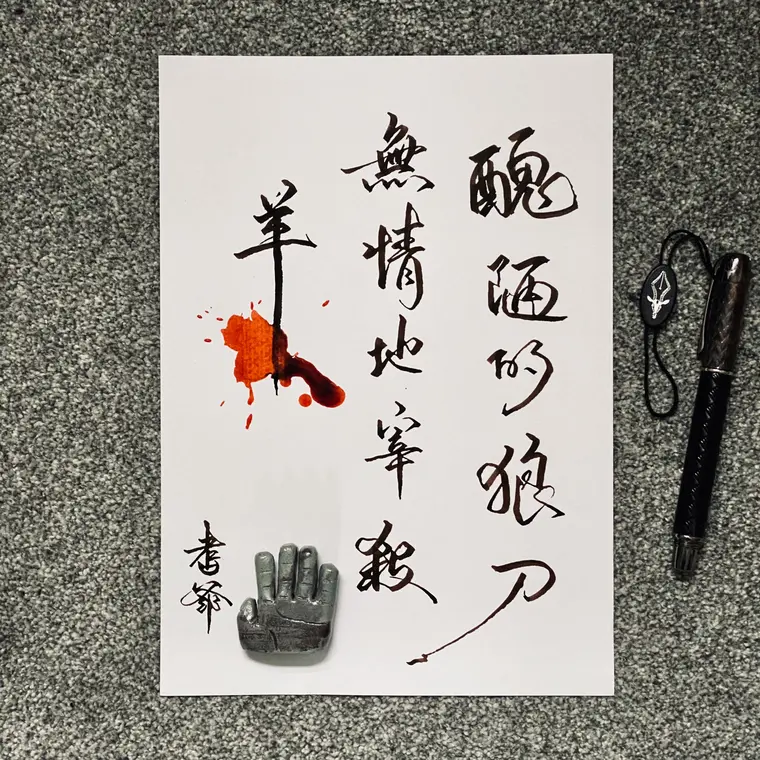 醜陋的狼刀
無情地宰殺
羊
書爺